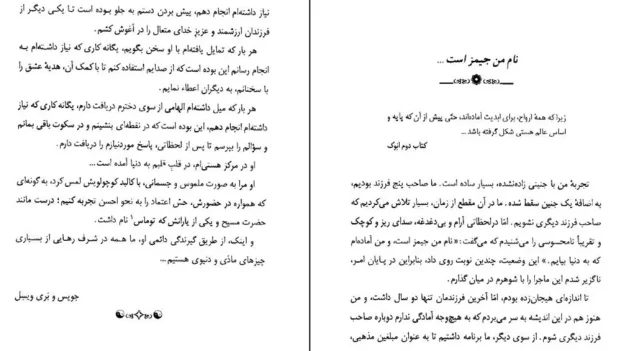 نام من جیمز است ...
زیرا که همهٔ ارواح، برای ابدیت آماده‌اند، حتّی پیش از آن که پایه و
اساس عالم هستی شکل گرفته باشد ...
کتاب دوم انوک
تجربهٔ من با جنینی زاده‌نشده، بسیار ساده است. ما صاحب پنج فرزند بودیم،
به اضافهٔ یک جنین سقط شده. ما در آن مقطع از زمان، بسیار تلاش می‌کردیم که
صاحب فرزند دیگری نشویم. امّا در لحظاتی آرام و بی‌دغدغه، صدای ریز و کوچک
و تقریباً نامحسوسی را می‌شنیدم که می‌گفت: «نام من جیمز است، و من آماده‌ام
که به دنیا بیایم.» این وضعیت، چندین نوبت روی داد، بنابراین در پایان امر،
ناگزیر شدم این ماجرا را با شوهرم در میان گذارم.
تا اندازه‌ای هیجان‌زده بودم، امّا آخرین فرزندمان تنها دو سال داشت، و من
هنوز هم در این اندیشه به سر می‌بردم که به هیچ‌وجه آمادگی ندارم دوباره صاحب
فرزند دیگری شوم. از سوی دیگر، ما برنامه داشتیم تا به عنوان مبلغین مذهبی،
نیاز داشته‌ام انجام دهم، پیش بردن دستم به جلو بوده است تا یکی دیگر از
فرزندان ارزشمند و عزیز خدای متعال را در آغوش کشم.
هر بار که تمایل یافته‌ام با او سخن بگویم، یگانه کاری که نیاز داشته‌ام به
انجام رسانم این بوده است که از صدایم استفاده کنم تا با کمک آن، هدیهٔ عشق را
با سخنانم، به دیگران اعطاء نمایم.
هر بار که میل داشته‌ام الهامی از سوی دخترم دریافت دارم، یگانه کاری که نیاز
داشته‌ام انجام دهم، این بوده است که در نقطه‌ای بنشینم و در سکوت باقی بمانم
و سؤالم را بپرسم تا پس از لحظاتی، پاسخ موردنیازم را دریافت دارم.
او در مرکز هستی‌ام، در قلبِ قلبم به دنیا آمده است...
او مرا به صورت ملموس و جسمانی، با کالبد کوچولویش لمس کرد، به گونه‌ای
که همواره در حضورش، حسّ اعتماد را به نحو احسن تجربه کنیم؛ درست مانند
حضرت مسیح و یکی از یارانش که توماس۱ نام داشت.
و اینک، از طریق گیرندگی دائمی او، ما همه در شرف رهایی از بسیاری
چیزهای مادّی و دنیوی هستیم...
جویس و بَری ویسِل